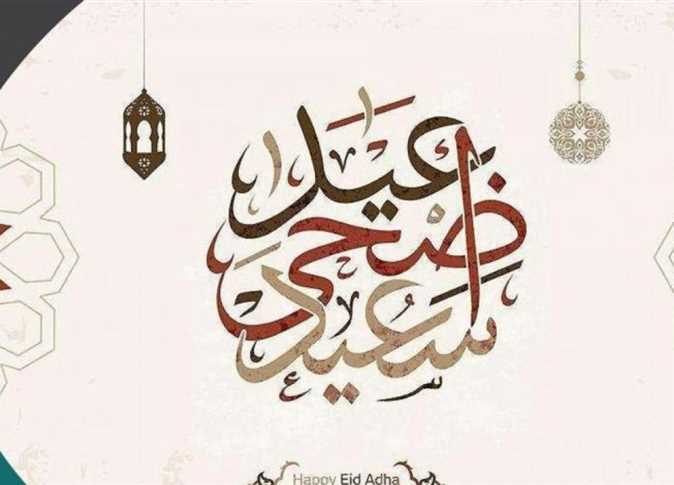 عيد
أضحى
سعيد
Happy Eid Adha